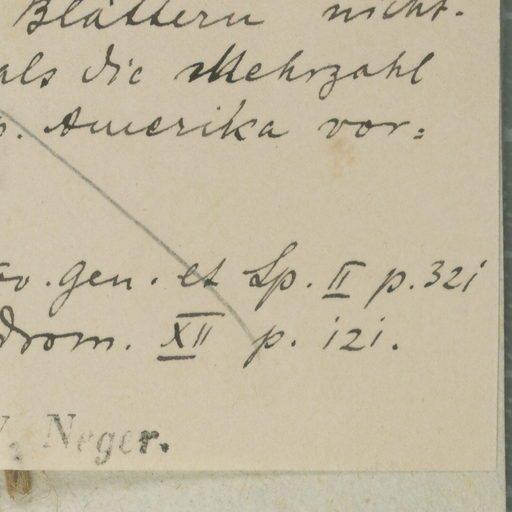 Blättern nicht-
als die Mehrzahl
. Amerika vor=
ov. gen. et Sp. II p. 321
drom. XII p. 121.
. Neger.